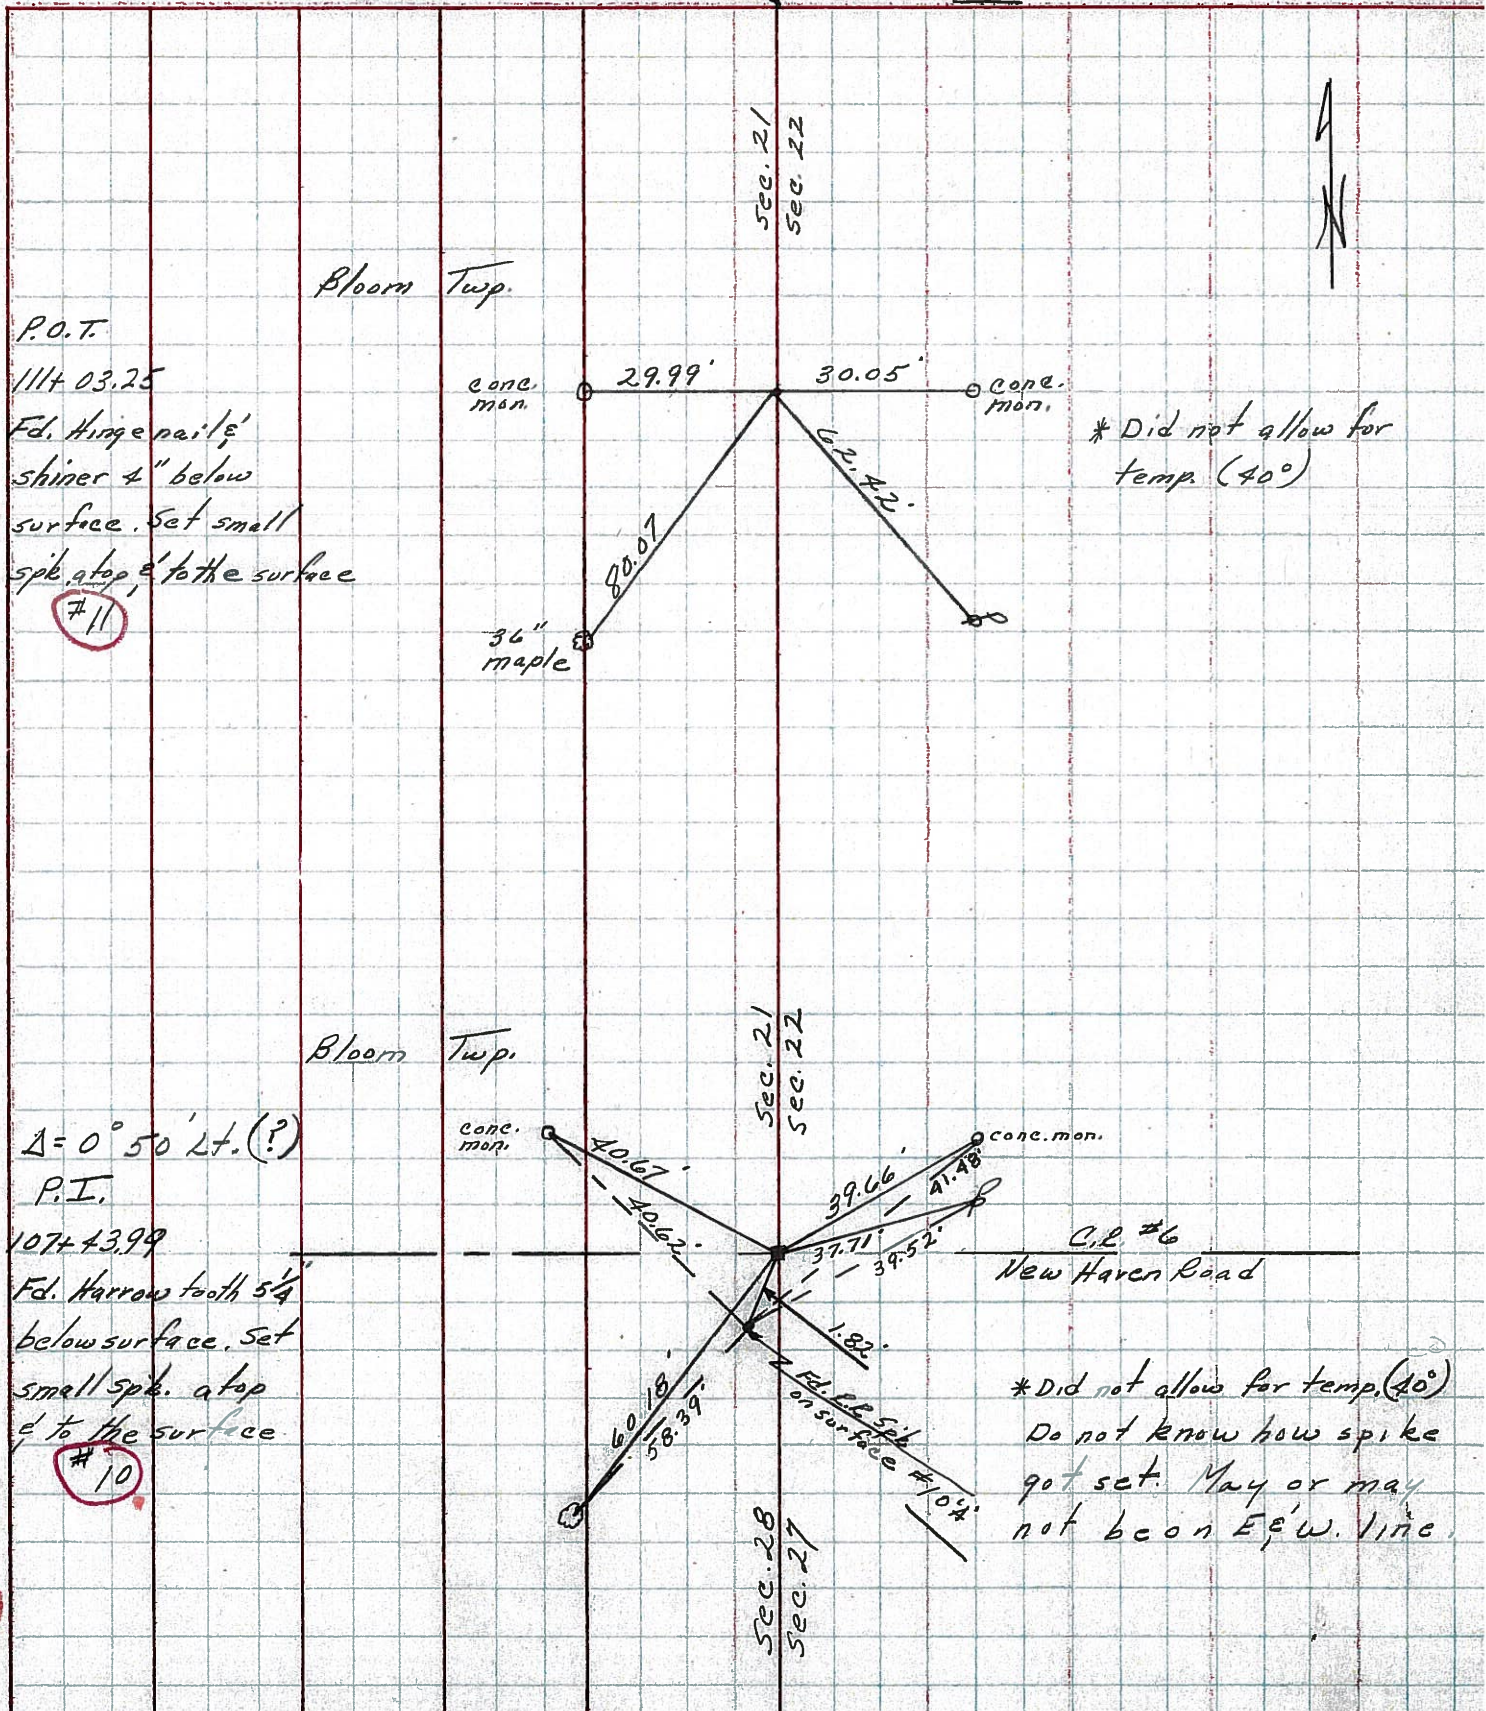 Sec. 21
Sec. 22
N
Bloom Twp.
P.O.T.
111+03.25
Fd. Hinge nail &
shiner 4" below
surface. Set small
spk. atop & to the surface
#11
conc.
mon.
29.99'
30.05'
conc.
mon.
62.42'
80.07
36"
maple
* Did not allow for
temp. (40°)
Sec. 21
Sec. 22
Bloom Twp.
Δ= 0° 50' Lt. (?)
P.I.
107+43.99
Fd. Harrow tooth 5 1/4"
below surface. Set
small spk. atop
& to the surface
#10
conc.
mon.
40.67'
40.62'
39.66'
41.48'
conc. mon.
37.71'
39.52'
C.R. #6
New Haven Road
1.82'
60.18'
58.39'
Fd. R.R. Spk.
on surface #10A
* Did not allow for temp. (40°)
Do not know how spike
got set. May or may
not be on E & W. line.
Sec. 28
Sec. 27